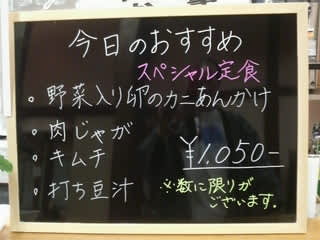 今日のおすすめ
スペシャル定食
・野菜入り卵のカニあんかけ
・肉じゃが
・キムチ
¥1,050-
・打ち豆汁
※数に限りが
ございます。